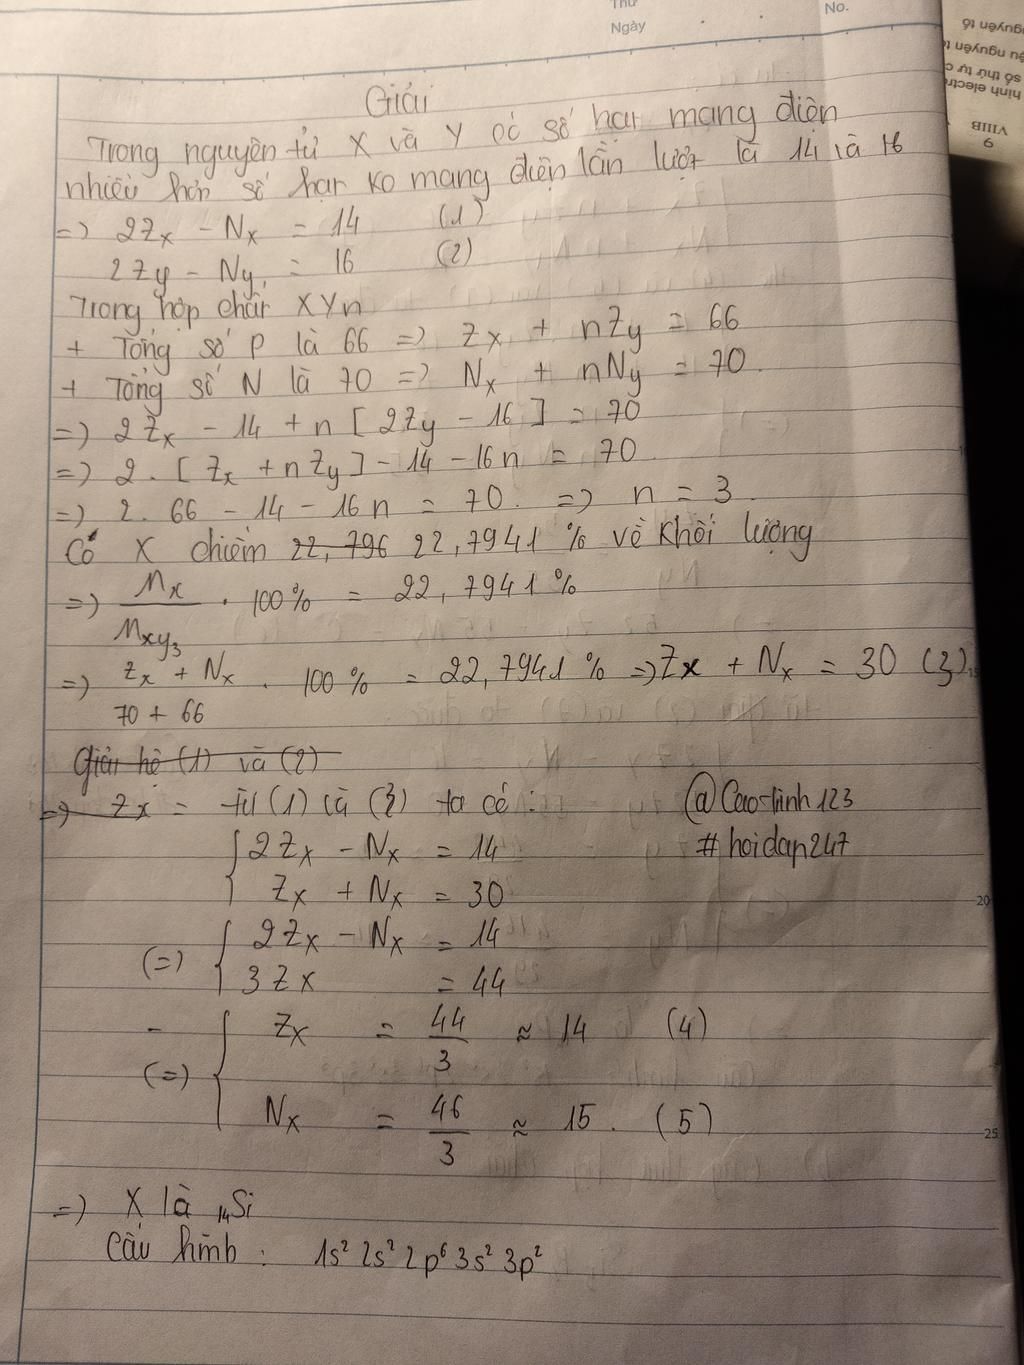 Thứ
Ngày
No.
Giải
Trong nguyên tử X và Y có số hạt mang điện
nhiều hơn số hạt ko mang điện lần lượt là 14 và 16
=> 2Zx - Nx = 14 (1)
2Zy - Ny = 16 (2)
Trong hợp chất XYn
+ Tổng số P là 66 => Zx + nZy = 66
+ Tổng số N là 70 => Nx + nNy = 70.
=> 2Zx - 14 + n [2Zy - 16] = 70
=> 2. [Zx + nZy] - 14 - 16n = 70.
=> 2. 66 - 14 - 16n = 70. => n = 3.
Có X chiếm 22,796 22,7941 % về khối lượng
=> Mx / Mxy3 . 100% = 22,7941%
=> Zx + Nx / 70 + 66 . 100% = 22,7941% => Zx + Nx = 30 (3)
Giải hệ (1) và (2)
=> Zx = từ (1) và (3) ta có : @Cao-linh123
{ 2Zx - Nx = 14 #hoidap247
Zx + Nx = 30
(=) { 2Zx - Nx = 14
3Zx = 44
(=) { Zx = 44/3 ≈ 14 (4)
Nx = 46/3 ≈ 15. (5)
=> X là 14Si
Cấu hình : 1s² 2s² 2p⁶ 3s² 3p²
20
25
VIIIB
9